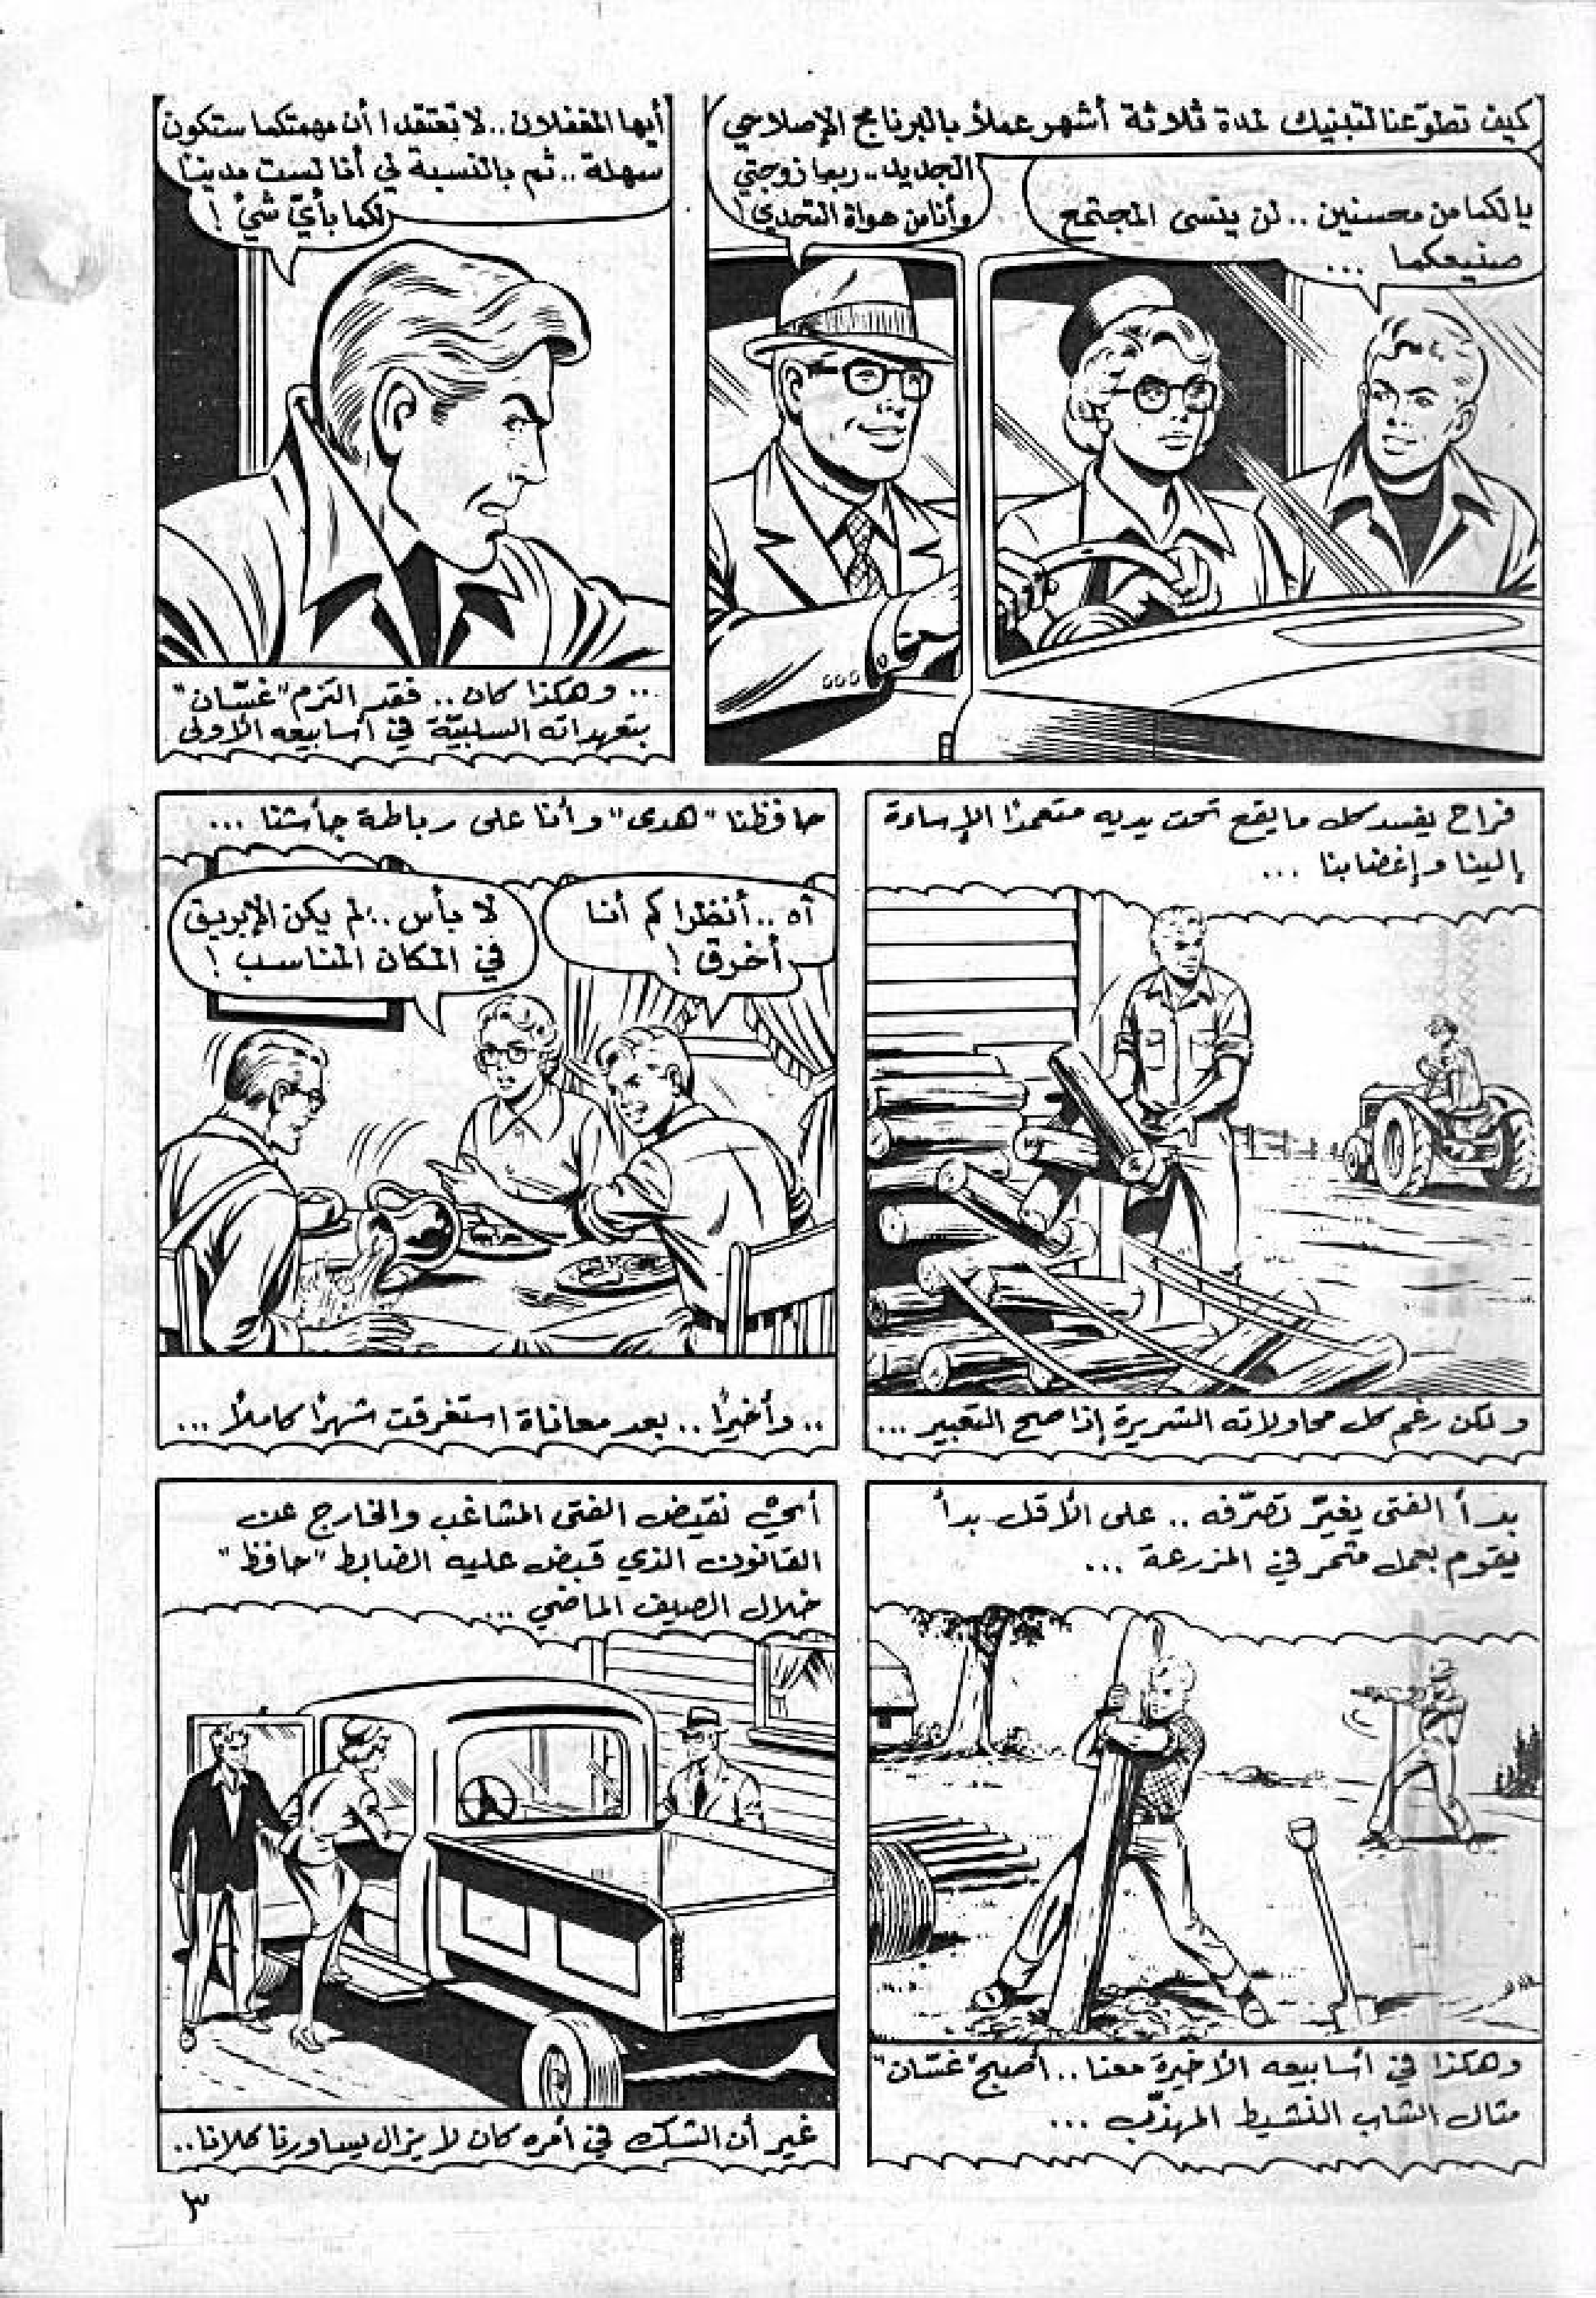 كيف تطوّعنا لتبنيك لمدة ثلاثة أشهر عملاً بالبرنامج الإصلاحي
الجديد.. ربما زوجتي
وأنا من هواة التحدي!
يا لكما من محسنين .. لن ينسى المجتمع
صنيعكما ...
أيها المغفلان.. لا تعتقدا أن مهمتكما ستكون
سهلة .. ثم بالنسبة لي أنا لست مدينا
لكما بأيّ شيء !
... وهكذا كان .. فقد التزم "غسّان"
بتعهداته السلبيّة في أسابيعه الأولى
فراح يفسد كل ما يقع تحت يديه متعمدًا الإساءة
إلينا وإغضابنا ...
ولكن رغم كل محاولاته الشريرة إذا صح التعبير ...
حافظنا "هدى" وأنا على رباطة جأشنا ...
آه .. أنظرا كم أنا
أخرق !
لا بأس .. لم يكن الإبريق
في المكان المناسب !
.. وأخيرًا .. بعد معاناة استغرقت شهرًا كاملاً ...
بدأ الفتى يغيّر تصرّفه .. على الأقل بدأ
يقوم بعمل مثمر في المزرعة ...
وهكذا في أسابيعه الأخيرة معنا .. أصبح "غسّان"
مثال الشاب النشيط المهذّب ...
أيْ نقيض الفتى المشاغب والخارج عن
القانون الذي قبض عليه الضابط "حافظ"
خلال الصيف الماضي ...
غير أن الشك في أمره كان لا يزال يساورنا كلانا..
٣